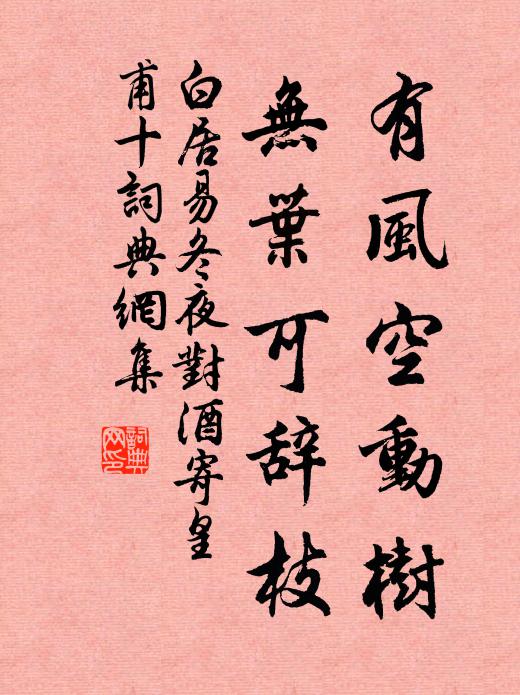 有風空動樹
無葉可辞枝
白居易冬夜對酒寄皇
甫十詞典網集
詞典
网印